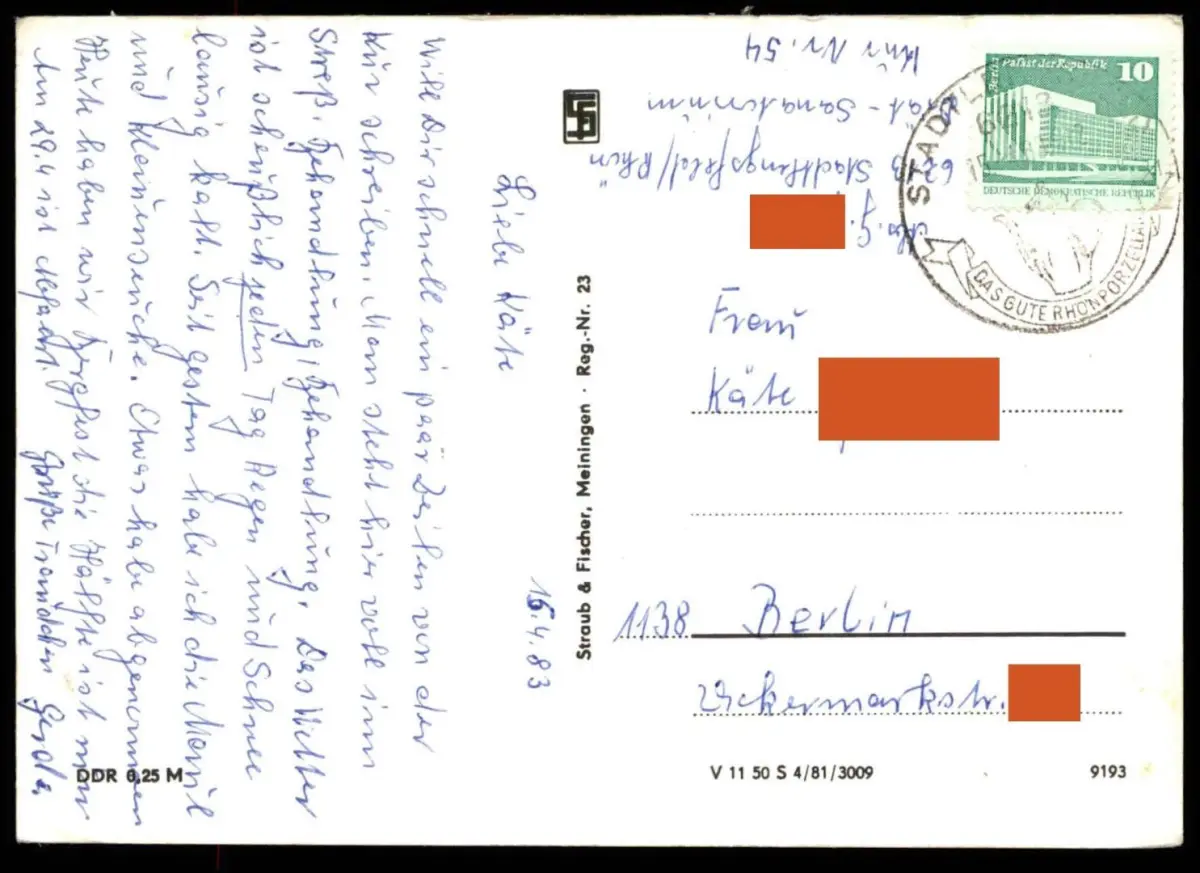 15.4.83
Liebe Käte
Will Dir schnell ein paar Zeilen von der
Kur schreiben. Man steht hier voll im
Streß. Behandlung, Behandlung. Das Wetter
ist scheußlich jeden Tag Regen und Schnee
lausig kalt. Seit gestern habe ich die Maul
und Kleinunseuche. Etwas habe abgenommen
Heute haben wir Bergfest die Hälfte ist rum
Am 29.4 ist Abfahrt.
Grüße Traudchen Gerda
DDR 0,25 M
Straub & Fischer, Meiningen · Reg.-Nr. 23
Abs. G.
6213 Stadtlengsfeld/Rhön
Diät-Sanatorium
Kur Nr. 54
Berlin Palast der Republik 10
DEUTSCHE DEMOKRATISCHE REPUBLIK
STADTL
6213
DAS GUTE RHÖNPORZELLAN
Frau
Käte
1138 Berlin
Uckermarkstr.
V 11 50 S 4/81/3009
9193